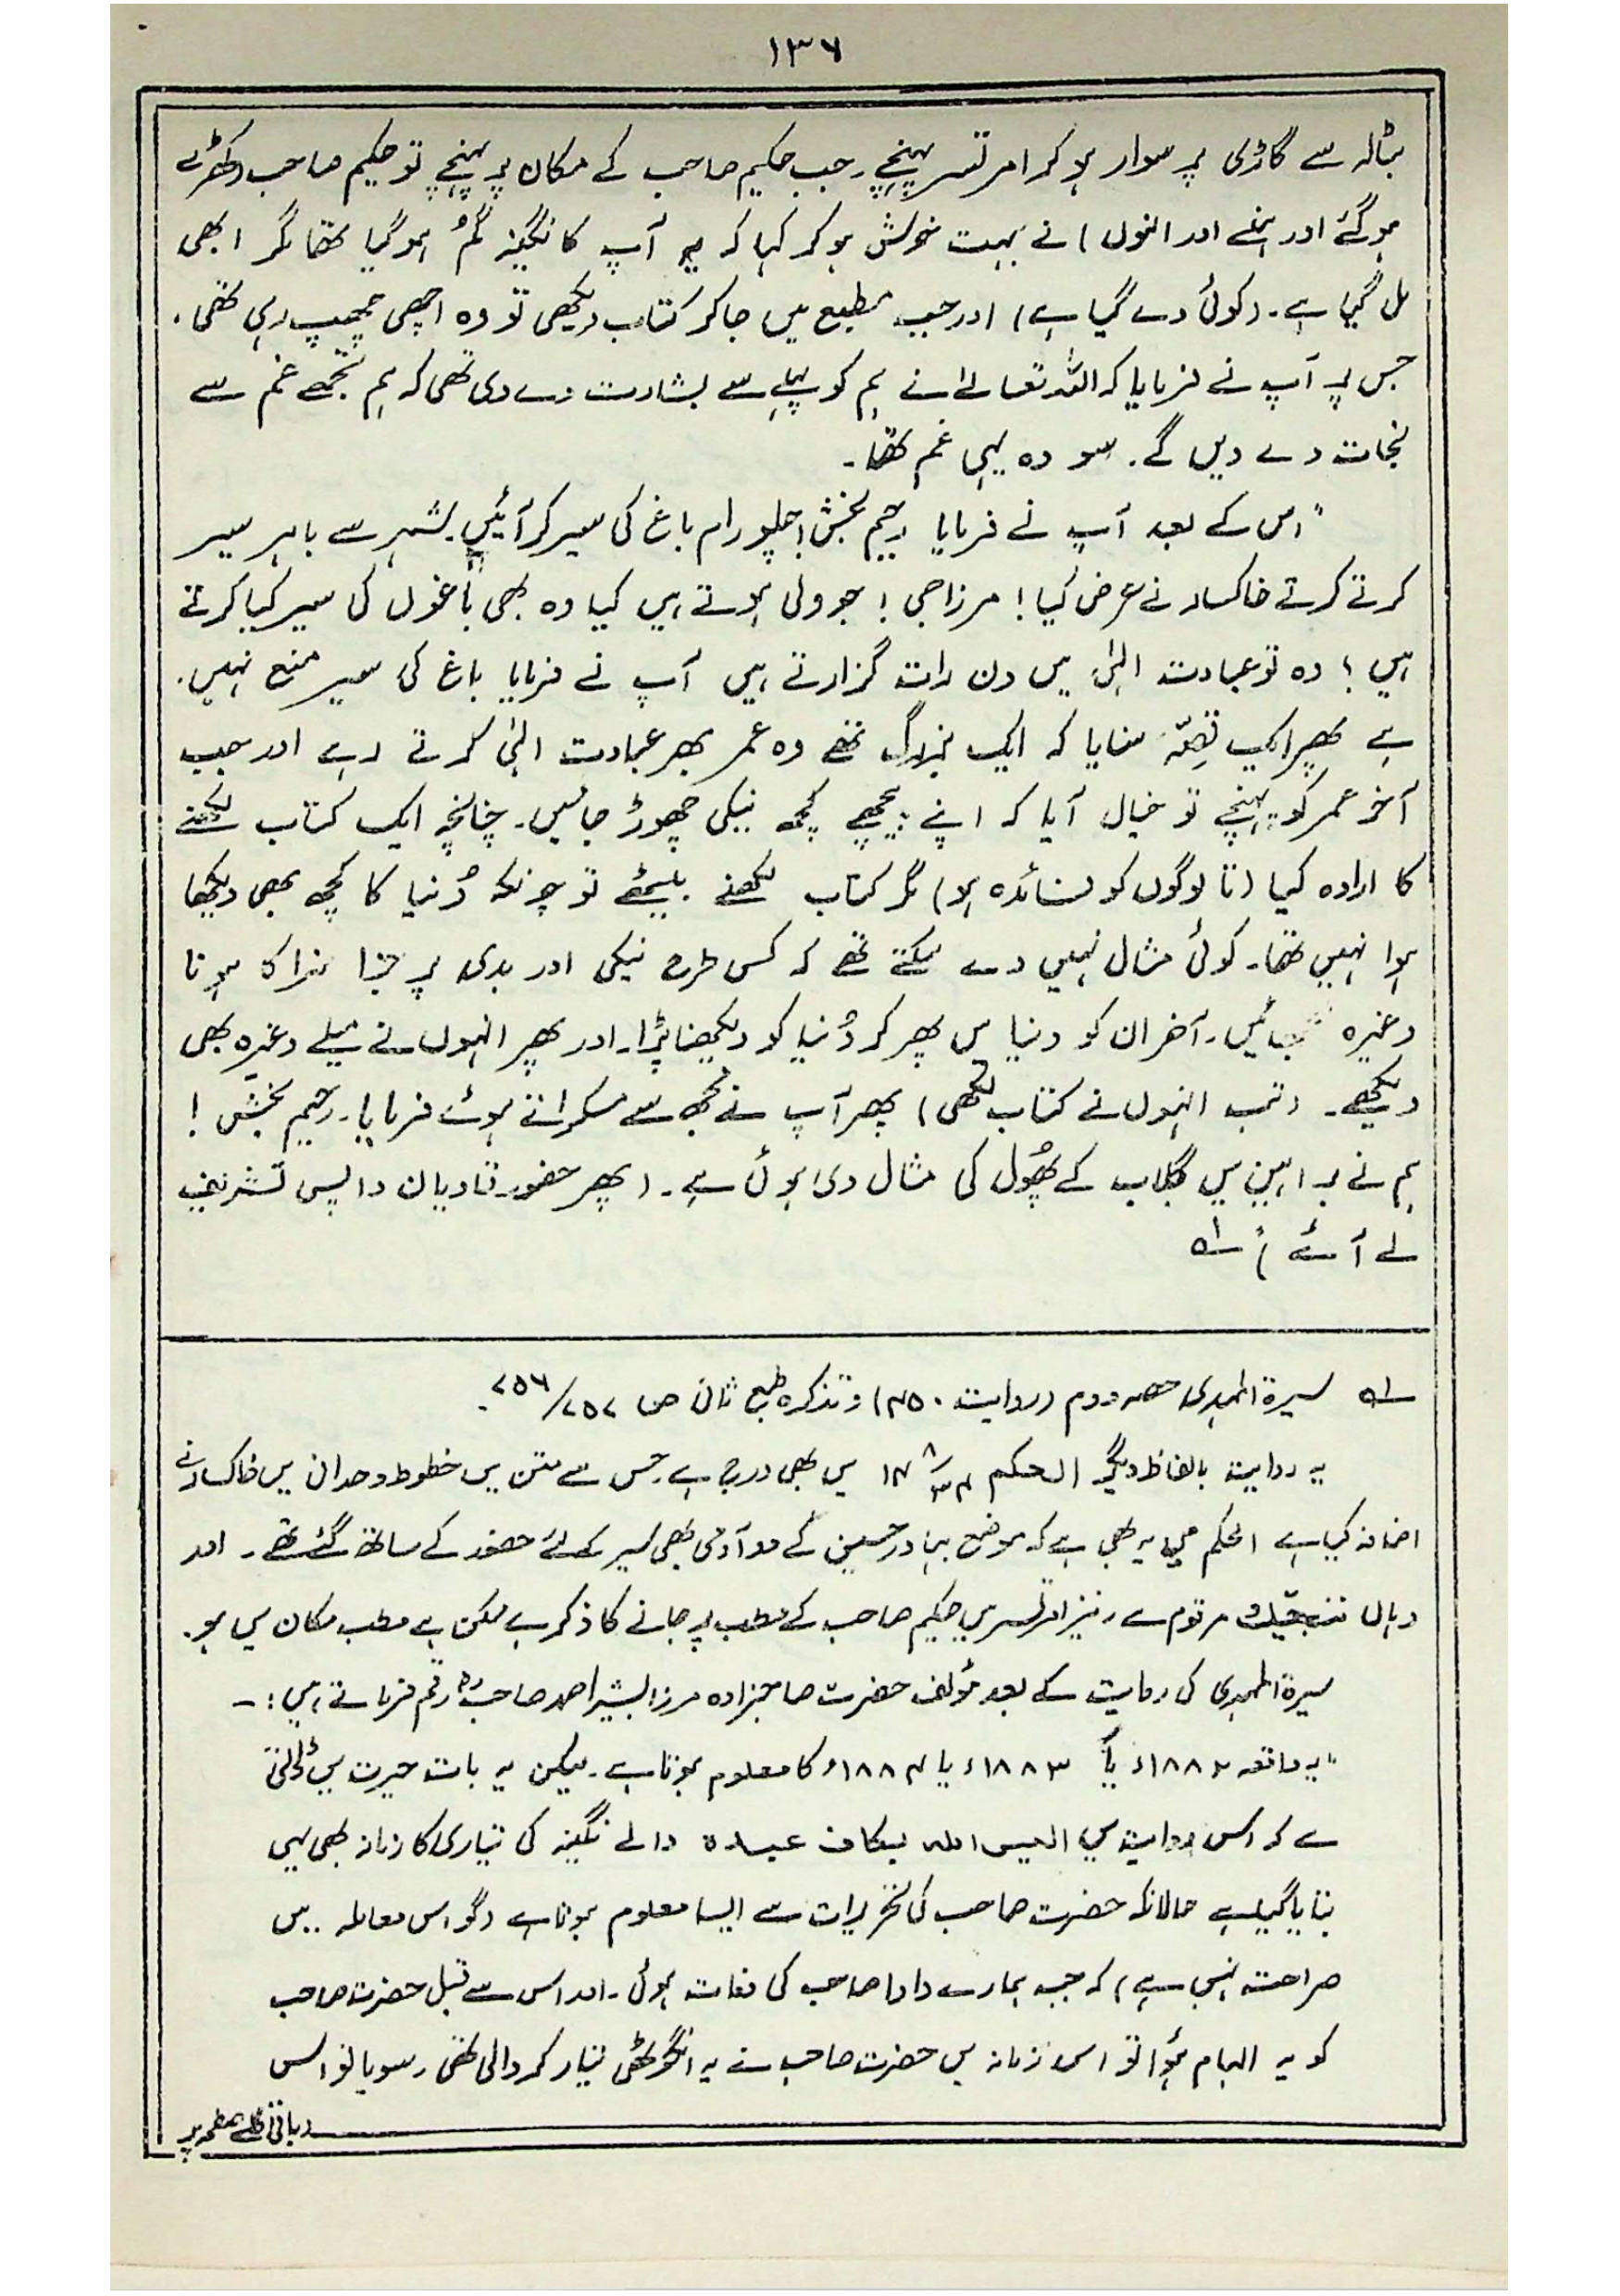 ۱۳۶
بٹالہ سے گاڑی پر سوار ہو کر امرتسر پہنچے۔ جب حکیم صاحب کے مکان پر پہنچے تو حکیم صاحب (کھڑے
ہو گئے اور ہنسے اور انہوں) نے بہت خوش ہو کر کہا کہ یہ آپ کا نگینہ گُم ہو گیا تھا مگر ابھی
مل گیا ہے۔ (کوئی دے گیا ہے) اور جب مطبع میں جا کر کتاب دیکھی تو وہ اچھی چھپ رہی تھی۔
جس پر آپ نے فرمایا کہ اللہ تعالےٰ نے ہم کو پہلے سے بشارت دے دی تھی کہ ہم تجھے غم سے
نجات دے دیں گے۔ سو وہ یہی غم تھا۔
"اس کے بعد آپ نے فرمایا رحیم بخش! چلو رام باغ کی سیر کر آئیں۔ شہر سے باہر سیر
کرتے کرتے خاکسار نے عرض کیا! مرزا جی! جو ولی ہوتے ہیں کیا وہ بھی باغوں کی سیر کیا کرتے
ہیں؟ وہ تو عبادت الٰہی میں دن رات گزارتے ہیں آپ نے فرمایا باغ کی سیر منع نہیں۔
ہے پھر ایک قصّہ سنایا کہ ایک بزرگ تھے وہ عمر بھر عبادت الٰہی کرتے رہے اور جب
آخر عمر کو پہنچے تو خیال آیا کہ اپنے پیچھے کچھ نیکی چھوڑ جائیں۔ چنانچہ ایک کتاب لکھنے
کا ارادہ کیا (تا لوگوں کو فائدہ ہو) مگر کتاب لکھنے بیٹھے تو چونکہ دُنیا کا کچھ بھی دیکھا
ہوا نہیں تھا۔ کوئی مثال نہیں دے سکتے تھے کہ کس طرح نیکی اور بدی پر جزا سزا کا ہونا
وغیرہ بتائیں۔ آخر ان کو دنیا میں پھر کر دُنیا کو دیکھنا پڑا۔ اور پھر انہوں نے میلے وغیرہ بھی
دیکھے۔ (تب انہوں نے کتاب لکھی) پھر آپ نے مجھ سے مسکراتے ہوئے فرمایا۔ رحیم بخش!
ہم نے براہین میں گلاب کے پھُول کی مثال دی ہوئی ہے۔ (پھر حضور قادیان واپس تشریف
لے آئے)" لہ
لہ سیرۃ المہدی حصہ دوم (روایت ۴۵۰) و تذکرہ طبع ثانی ص ۲۵۶/۲۵۷۔
یہ روایت بالفاظ دیگر الحکم میں بھی درج ہے جس سے متن میں خطوط وحدانی میں خاکسار نے
اضافہ کیا ہے الحکم میں یہ بھی ہے کہ موضع بہادر حسین کے دو آدمی بھی سیر کے لئے حضور کے ساتھ گئے تھے۔ اور
وہاں مرقوم ہے۔ نیز امرتسر میں حکیم صاحب کے مطب پر جانے کا ذکر ہے ممکن ہے مطب مکان میں ہو۔
سیرۃ المہدی کی روایت کے بعد مؤلف حضرت صاحبزادہ مرزا بشیر احمد صاحبؓ رقم فرماتے ہیں:۔
"یہ واقعہ ۱۸۸۲ء یا ۱۸۸۳ء یا ۱۸۸۴ء کا معلوم ہوتا ہے۔ لیکن یہ بات حیرت میں ڈالتی
ہے کہ اس روایت میں الیس اللہ بکاف عبدہ والے نگینہ کی تیاری کا زمانہ بھی یہی
بتایا گیا ہے حالانکہ حضرت صاحب کی تحریرات سے ایسا معلوم ہوتا ہے (گو اس معاملہ میں
صراحت نہیں ہے) کہ جب ہمارے دادا صاحب کی وفات ہوئی۔ اور اس سے قبل حضرت صاحب
کو یہ الہام ہؤا تو اسی زمانہ میں حضرت صاحب نے یہ انگوٹھی تیار کروالی تھی۔ سو یا تو اس
(باقی اگلے صفحہ پر